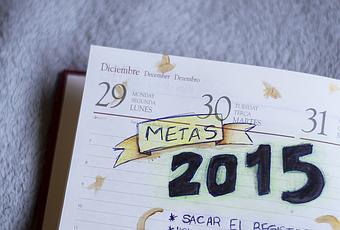 Diciembre December Dezembro
29 MONDAY
SEGUNDA
LUNES
30 TUESDAY
TERÇA
MARTES
31
METAS
2015
* SACAR EL